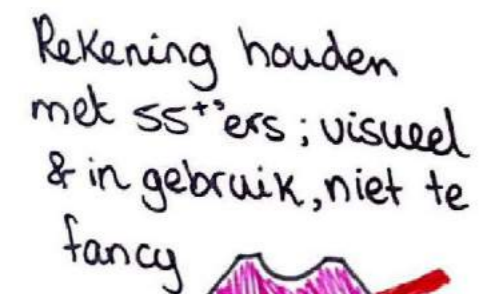 Rekening houden
met 55+'ers ; visueel
& in gebruik, niet te
fancy